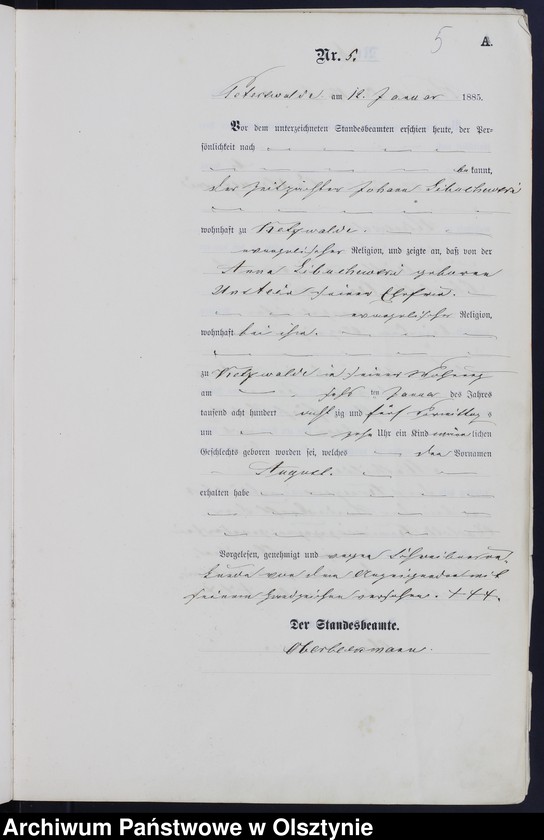 5
A.
Nr. 5.
Peterswalde am 12. Januar 1885.
Vor dem unterzeichneten Standesbeamten erschien heute, der Per-
sönlichkeit nach
bekannt,
der Zeitpächter Johann
wohnhaft zu
evangelischer Religion, und zeigte an, daß von der
Anna geborene
seiner Ehefrau.
evangelischer Religion,
wohnhaft bei ihm.
zu in seiner Wohnung
am ten Januar des Jahres
tausend acht hundert achtzig und fünf Vormittags
um zehn Uhr ein Kind männlichen
Geschlechts geboren worden sei, welches den Vornamen
August.
erhalten habe
Vorgelesen, genehmigt und wegen Schreibensun-
kunde von dem Anzeigenden mit
seinem Handzeichen versehen. +++.
Der Standesbeamte.
Archiwum Państwowe w Olsztynie